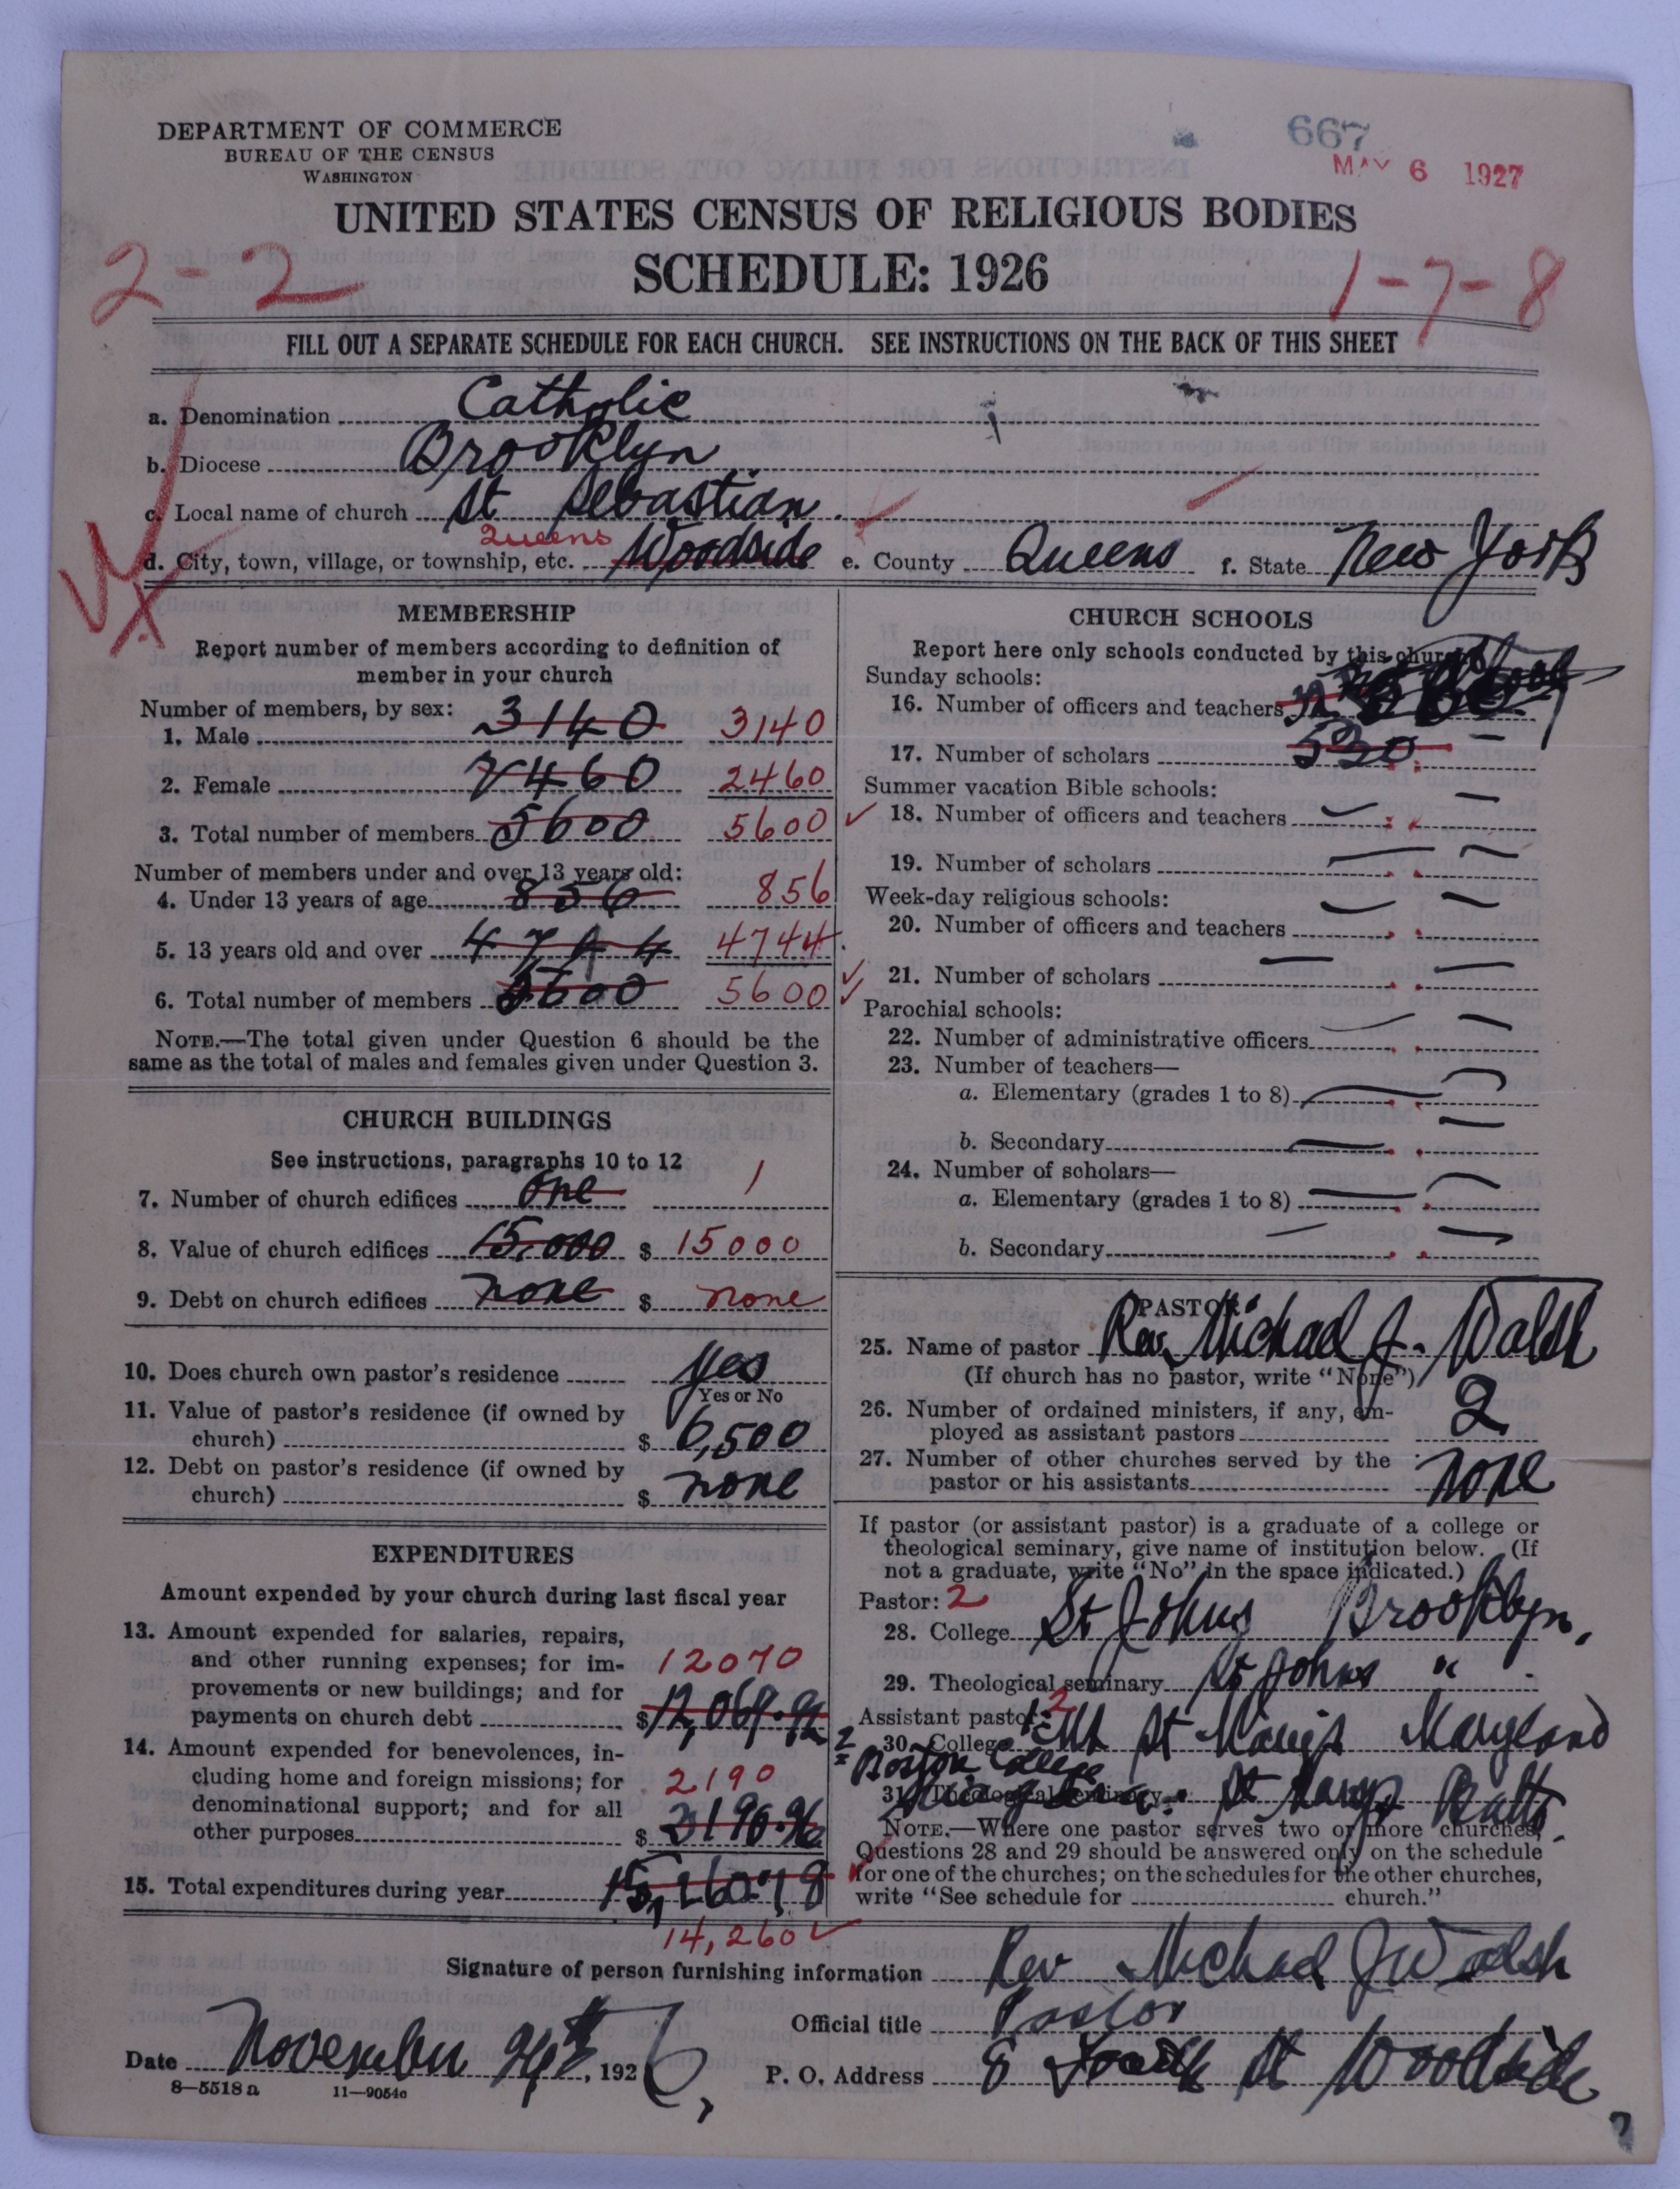 667
MAY 6 1927
DEPARTMENT OF COMMERCE
BUREAU OF THE CENSUS
WASHINGTON
UNITED STATES CENSUS OF RELIGIOUS BODIES
SCHEDULE: 1926
2-2
1-7-8
FILL OUT A SEPARATE SCHEDULE FOR EACH CHURCH. SEE INSTRUCTIONS ON THE BACK OF THIS SHEET
a. Denomination Catholic
b. Diocese Brooklyn
c. Local name of church St Sebastian.
Queens
d. City, town, village, or township, etc. Woodside e. County Queens f. State New York
MEMBERSHIP
Report number of members according to definition of
member in your church
Number of members, by sex:
1. Male 3140 3140
2. Female 2460 2460
3. Total number of members 5600 5600
Number of members under and over 13 years old:
4. Under 13 years of age 856 856
5. 13 years old and over 4744 4744
6. Total number of members 5600 5600
NOTE.—The total given under Question 6 should be the
same as the total of males and females given under Question 3.
CHURCH BUILDINGS
See instructions, paragraphs 10 to 12
7. Number of church edifices One 1
8. Value of church edifices 15,000 $ 15000
9. Debt on church edifices none $ none
10. Does church own pastor's residence yes
Yes or No
11. Value of pastor's residence (if owned by
church) $ 6,500
12. Debt on pastor's residence (if owned by
church) $ none
EXPENDITURES
Amount expended by your church during last fiscal year
13. Amount expended for salaries, repairs,
and other running expenses; for im- 12070
provements or new buildings; and for
payments on church debt $ 12,069.92
14. Amount expended for benevolences, in-
cluding home and foreign missions; for 2190
denominational support; and for all
other purposes $
15. Total expenditures during year
14,260
CHURCH SCHOOLS
Report here only schools conducted by this church
Sunday schools:
16. Number of officers and teachers
17. Number of scholars 530 —
Summer vacation Bible schools:
18. Number of officers and teachers — —
19. Number of scholars — —
Week-day religious schools:
20. Number of officers and teachers — —
21. Number of scholars — —
Parochial schools:
22. Number of administrative officers — —
23. Number of teachers—
a. Elementary (grades 1 to 8) — —
b. Secondary — —
24. Number of scholars—
a. Elementary (grades 1 to 8) — —
b. Secondary — —
PASTOR
25. Name of pastor Rev. Michael J. Walsh
(If church has no pastor, write "None")
26. Number of ordained ministers, if any, em-
ployed as assistant pastors 2
27. Number of other churches served by the
pastor or his assistants none
If pastor (or assistant pastor) is a graduate of a college or
theological seminary, give name of institution below. (If
not a graduate, write "No" in the space indicated.)
Pastor: 2
28. College St Johns Brooklyn.
29. Theological seminary St Johns "
Assistant pastor: 2
30. College Mt St Marys Maryland
2 Boston College
31. Theological seminary St Marys Balto.
NOTE.—Where one pastor serves two or more churches,
Questions 28 and 29 should be answered only on the schedule
for one of the churches; on the schedules for the other churches,
write "See schedule for church."
Signature of person furnishing information Rev Michael J Walsh
Official title Pastor
Date November 24th, 1926
P. O. Address 8 Fourth St Woodside
8—5518a 11—9054c